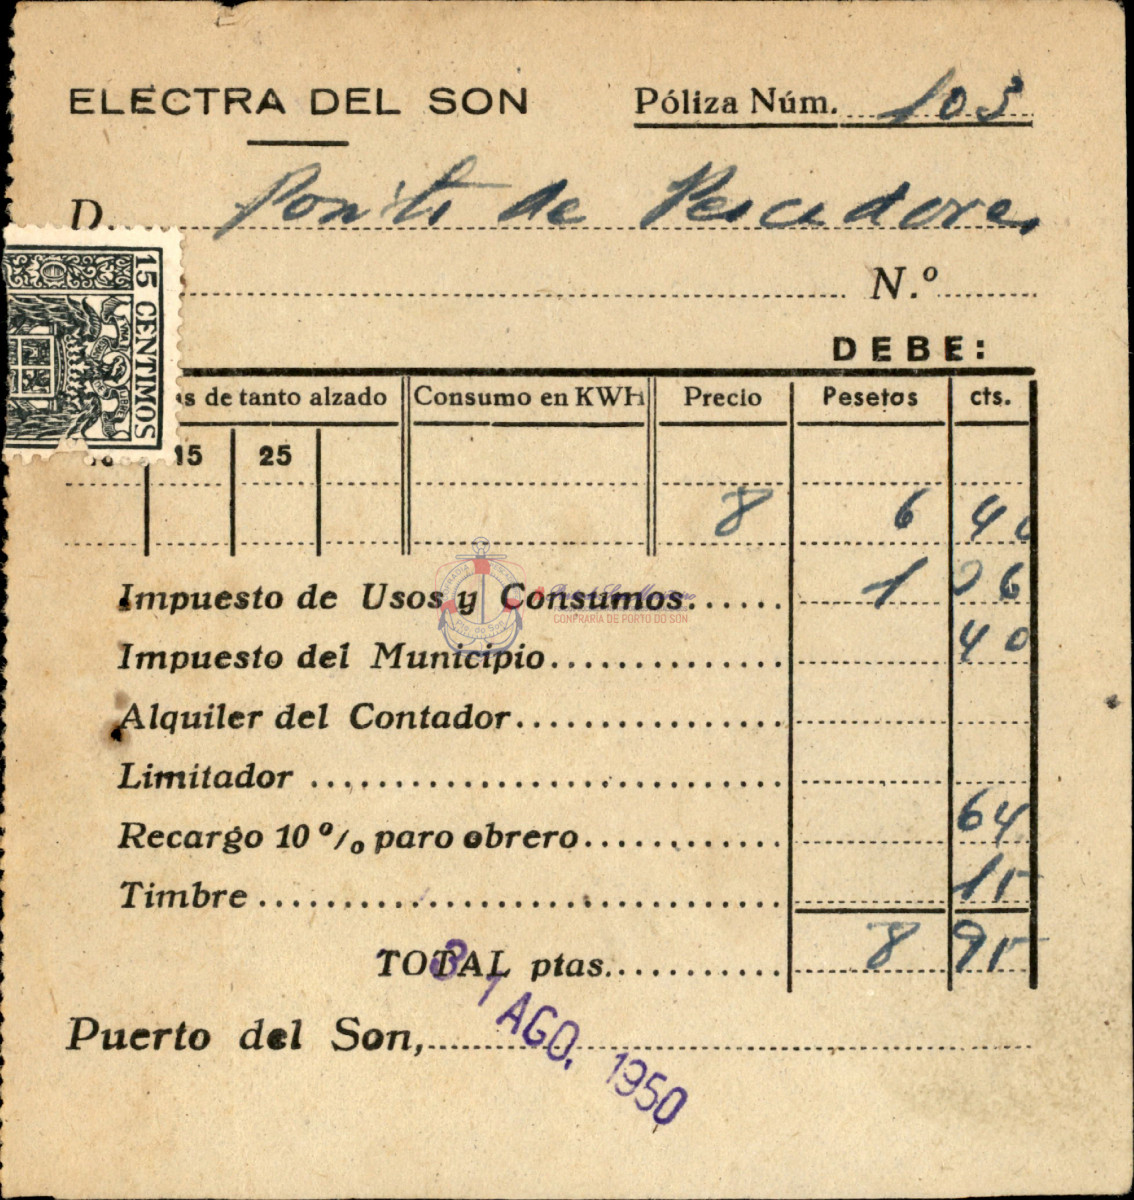 ELECTRA DEL SON Póliza Núm. 103
D. Posito de Pescadores
N.º
15 CENTIMOS
DEBE:
s de tanto alzado Consumo en KWH Precio Pesetas cts.
15 25
8 6 40
Impuesto de Usos y Consumos...... 1 36
CONFRARIA DE PORTO DO SON
Impuesto del Municipio.............. 40
Alquiler del Contador................
Limitador ............................
Recargo 10 % paro obrero............ 64
Timbre ............................... 15
TOTAL ptas........... 8 95
Puerto del Son,
31 AGO. 1950